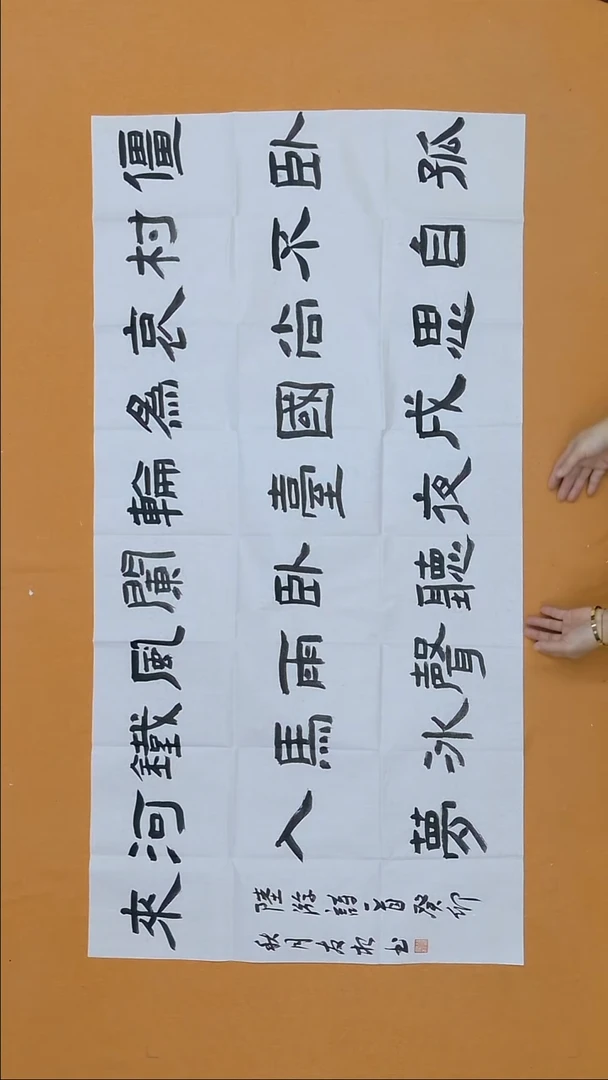 僵卧孤
村不自
哀尚思
爲國戍
輪臺夜
闌卧聽
風雨聲
鐵馬冰
河入夢
來
陸游詩一首癸卯
秋月友松书